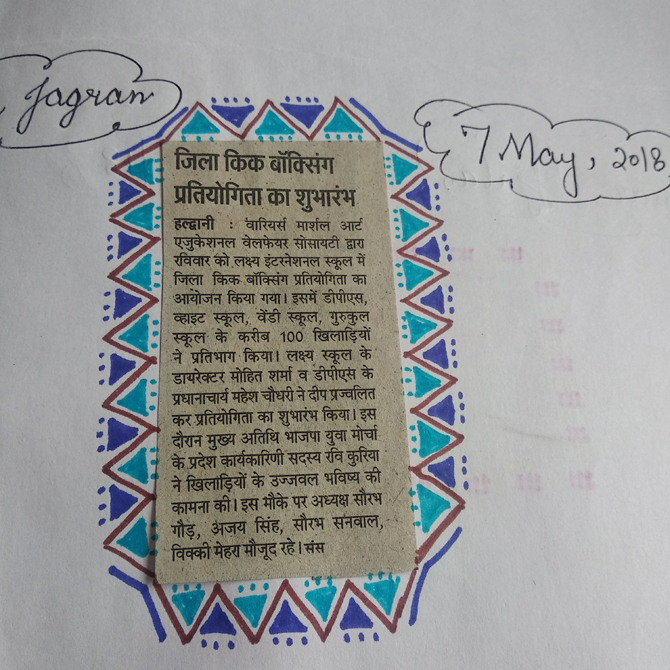 Jagran
7 May, 2018
जिला किक बॉक्सिंग
प्रतियोगिता का शुभारंभ
हल्द्वानी : वारियर्स मार्शल आर्ट
एजुकेशनल वेलफेयर सोसायटी द्वारा
रविवार को लक्ष्य इंटरनेशनल स्कूल में
जिला किक बॉक्सिंग प्रतियोगिता का
आयोजन किया गया। इसमें डीपीएस,
व्हाइट स्कूल, वेंडी स्कूल, गुरुकुल
स्कूल के करीब 100 खिलाड़ियों
ने प्रतिभाग किया। लक्ष्य स्कूल के
डायरेक्टर मोहित शर्मा व डीपीएस के
प्रधानाचार्य महेश चौधरी ने दीप प्रज्वलित
कर प्रतियोगिता का शुभारंभ किया। इस
दौरान मुख्य अतिथि भाजपा युवा मोर्चा
के प्रदेश कार्यकारिणी सदस्य रवि कुरिया
ने खिलाड़ियों के उज्जवल भविष्य की
कामना की। इस मौके पर अध्यक्ष सौरभ
गौड़, अजय सिंह, सौरभ सनवाल,
विक्की मेहरा मौजूद रहे। संस